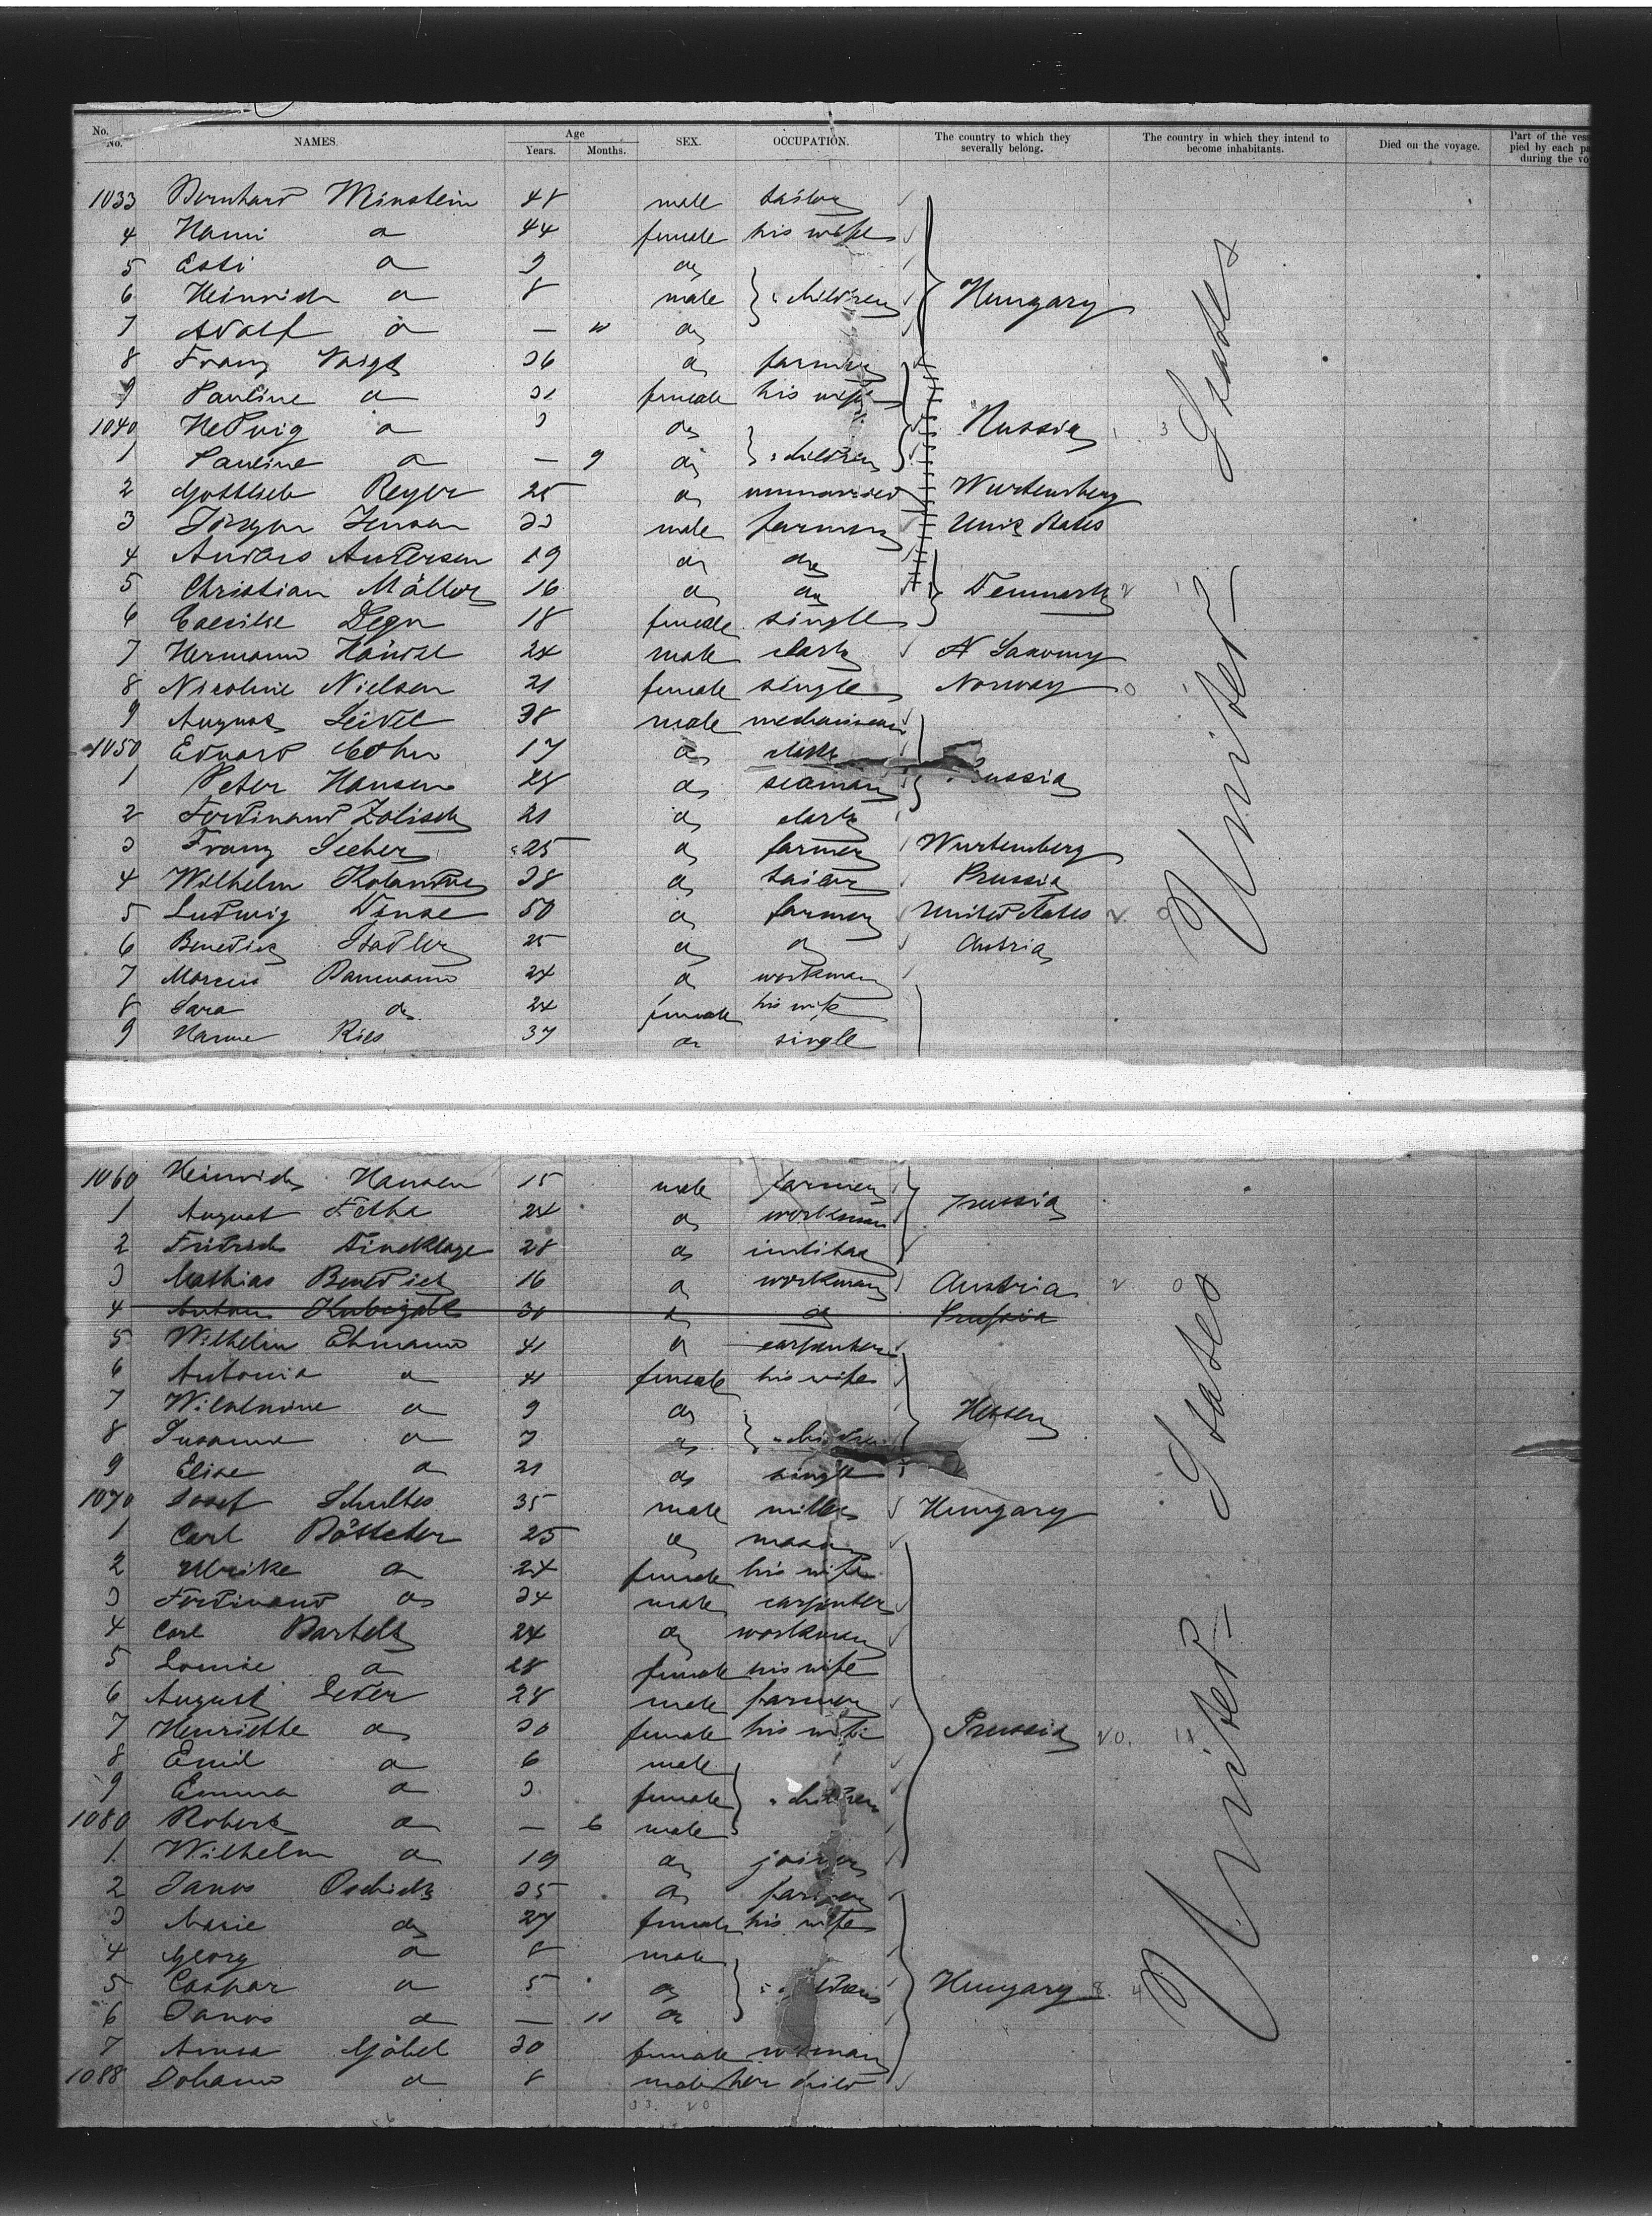 No. No. NAMES. Age Years. Months. SEX. OCCUPATION. The country to which they severally belong. The country in which they intend to become inhabitants. Died on the voyage. Part of the vess pied by each pa during the vo
1033 Bernhard Weinstein 48 male tailor
4 Hani do 44 female his wife
5 Esti do 9 do
6 Heinrich do 8 male children Hungary
7 Adolf do — do
8 Franz Voigt 36 do farmer
9 Pauline do 31 female his wife
1040 Hedwig do 3 do Russia
1 Pauline do — 9 do children
2 Gottlieb Reyer 25 do unmarried Wurtemberg
3 Jörgen Jensen 33 male farmer Unit States
4 Anders Andersen 19 do do
5 Christian Möller 16 do do Denmark
6 Caecilie Degn 18 female single
7 Hermann 24 male clark Saxony
8 Nicoline Nielsen 21 female single Norway
9 August Seidel 38 male
1050 Eduard Cohn 17 do clark
1 Peter Hansen 28 do seaman Russia
2 Ferdinand Zolisch 21 do clark
3 Franz Seeher 25 do farmer Wurtemberg
4 Wilhelm 38 do tailor Prussia
5 Ludwig 50 do farmer United States
6 Benedict Stadler 25 do do Austria
7 Marcus 24 do workman
8 Sara do 24 female his wife
9 Hanne Ries 37 do single
United States
1060 Heinrich Hansen 15 male farmer
1 August 24 do workman Prussia
2 Fridrich Dincklage 28 do
3 Mathias Benedict 16 do workman Austria
4 Anton 30 do do Prussia
5 Wilhelm Ehmann 41 do carpenter
6 Antonia do 41 female his wife
7 Wilhelmine do 9 do Hessen
8 Susanna do 7 do children
9 Elise do 21 do single
1070 Josef Schultes 35 male miller Hungary
1 Carl Böttcher 25 do mason
2 Ulrike do 24 female his wife
3 Ferdinand do 34 male carpenter
4 Carl Bartelt 24 do workman
5 Louise do 28 female his wife
6 August 28 male farmer
7 Henriette do 30 female his wife Prussia
8 Emil do 6 male
9 Emma do 3 female children
1080 Robert do — 6 male
1 Wilhelm do 19 do joiner
2 Janos 35 do farmer
3 Marie do 27 female his wife
4 Georg do 8 male
5 Caspar do 5 do children Hungary
6 Janos do — 11 do
7 Anna Göbel 30 female woman
1088 Johann do 8 male her child
United States